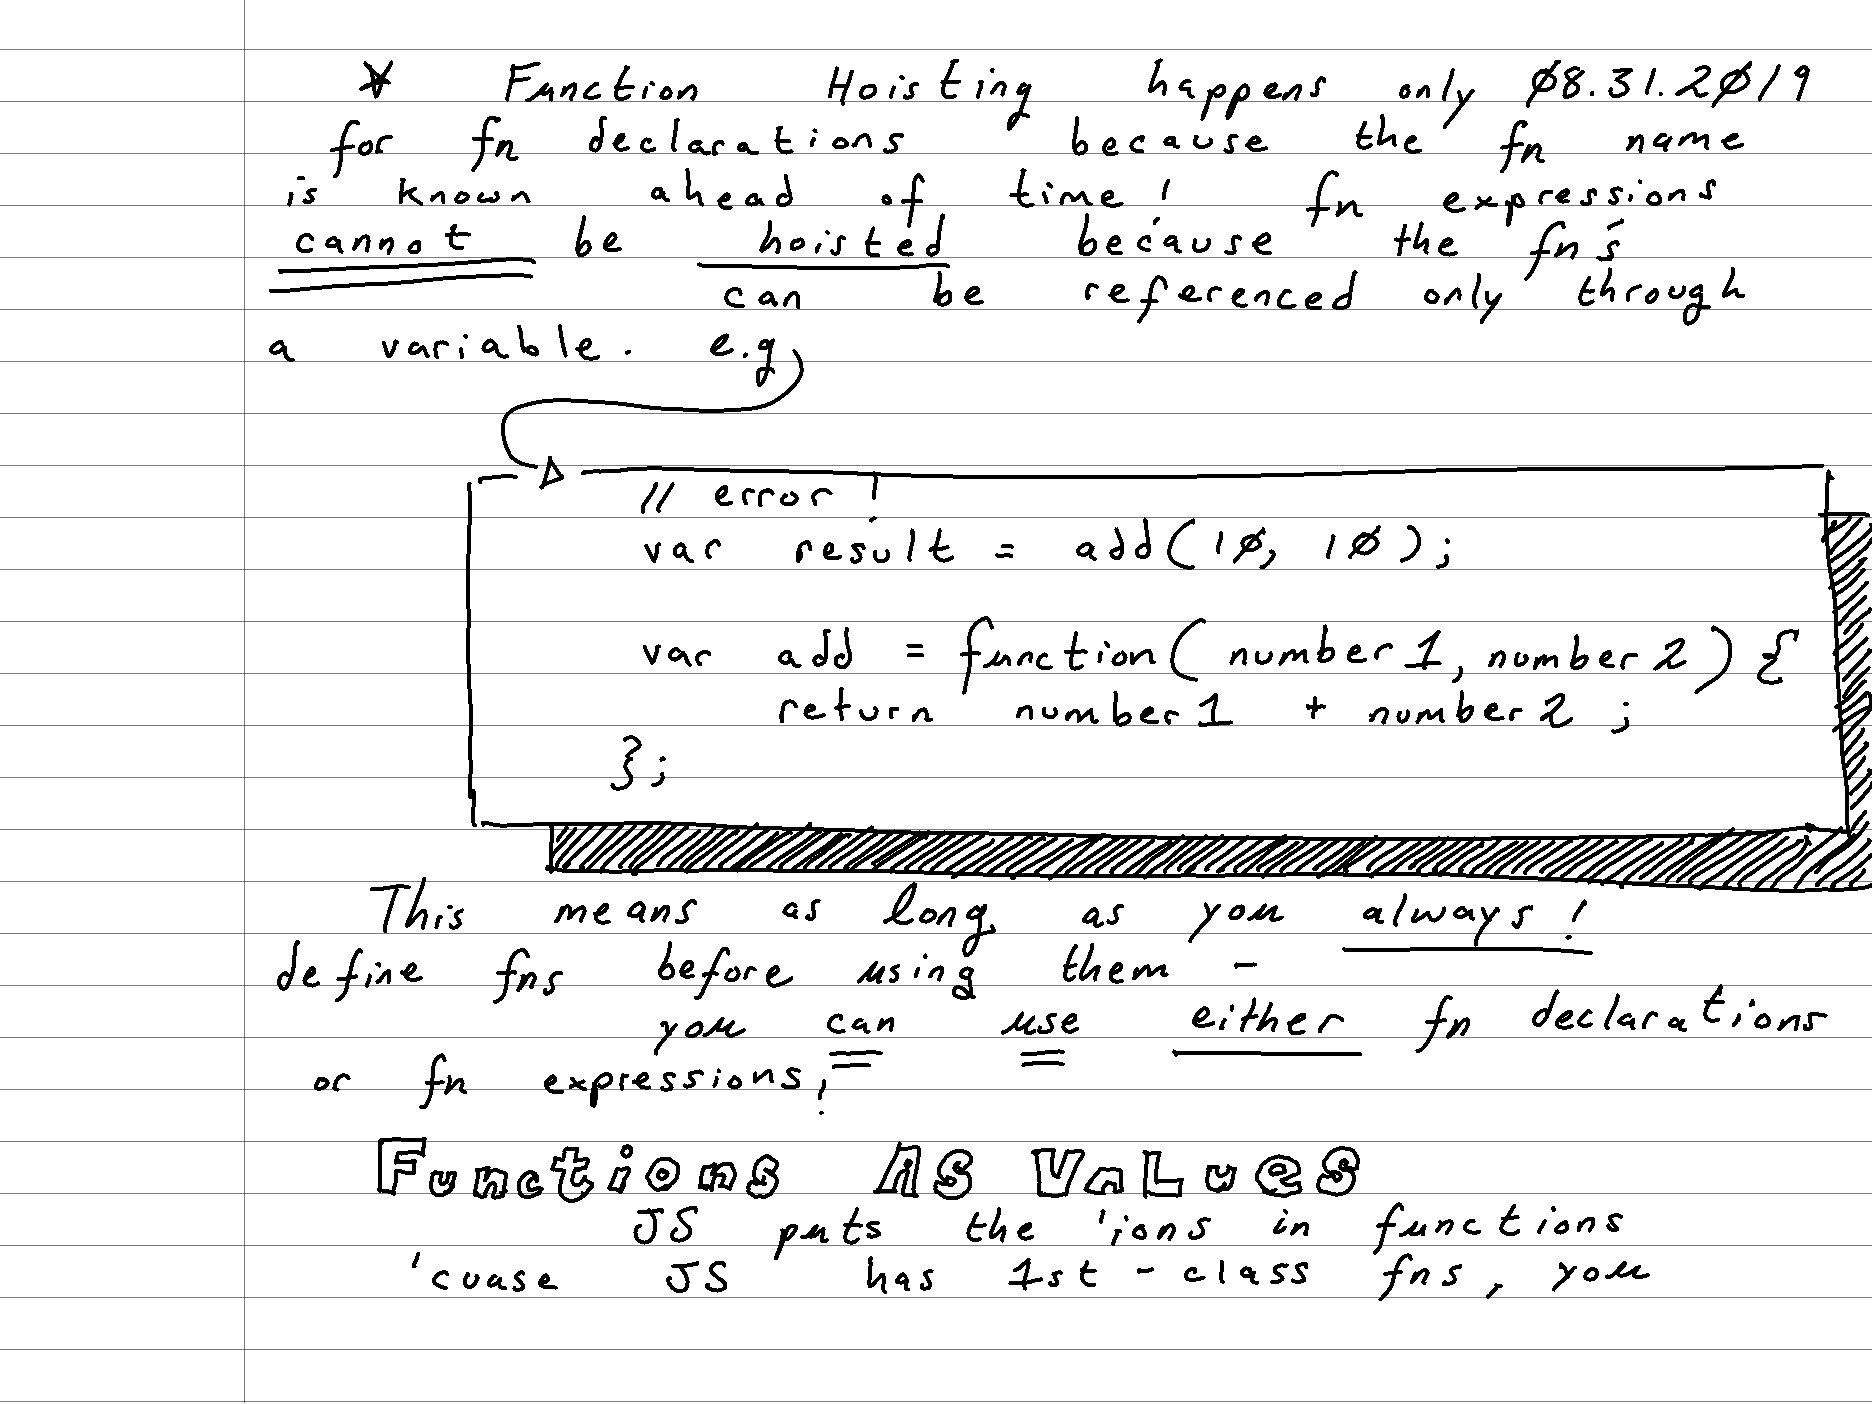 * Function Hoisting happens only 08.31.2019
for fn declarations because the fn name
is known ahead of time! fn expressions
cannot be hoisted because the fn's
can be referenced only through
a variable. e.g
// error!
var result = add(10, 10);
var add = function(number1, number2) {
return number1 + number2;
};
This means as long as you always!
define fns before using them -
you can use either fn declarations
or fn expressions!
Functions As Values
JS puts the 'ions in functions
'cuase JS has 1st-class fns, you